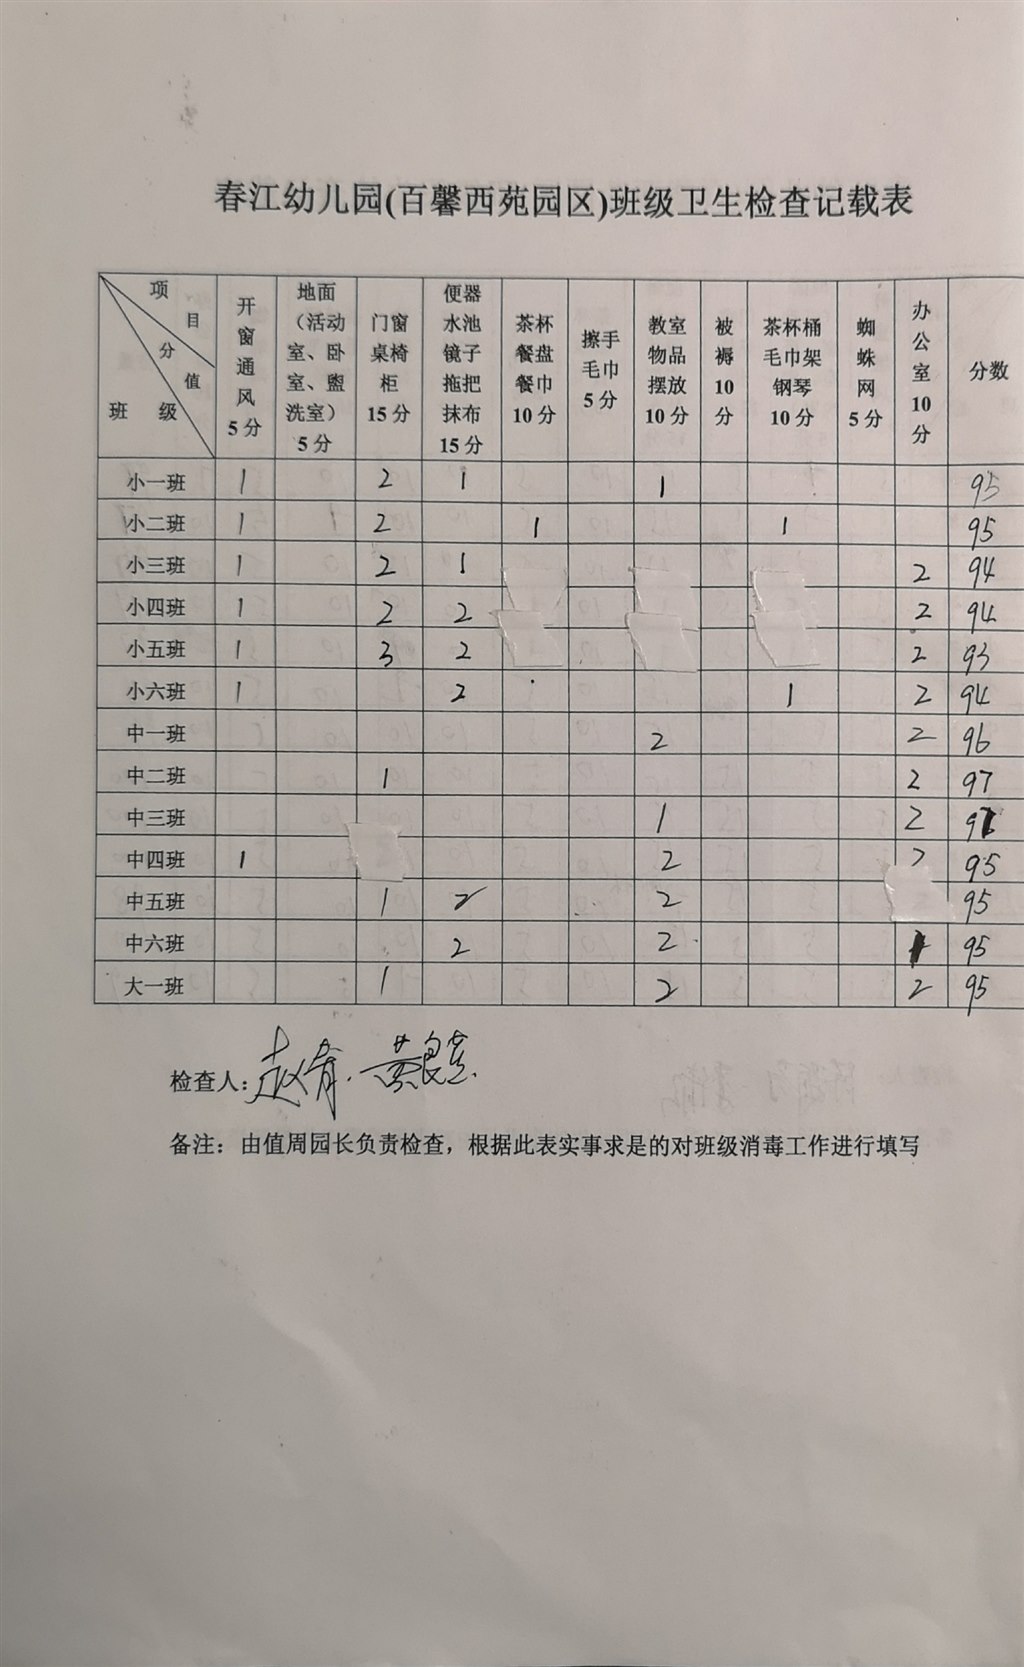 春江幼儿园(百馨西苑园区)班级卫生检查记载表
项目 分值 班级
开窗通风5分
地面（活动室、卧室、盥洗室）5分
门窗桌椅柜15分
便器水池镜子拖把抹布15分
茶杯餐盘餐巾10分
擦手毛巾5分
教室物品摆放10分
被褥10分
茶杯桶毛巾架钢琴10分
蜘蛛网5分
办公室10分
分数
小一班 1 2 1 1 95
小二班 1 2 1 1 95
小三班 1 2 1 2 94
小四班 1 2 2 2 94
小五班 1 3 2 2 93
小六班 1 2 1 2 94
中一班 2 2 96
中二班 1 2 97
中三班 1 2 97
中四班 1 2 2 95
中五班 1 2 2 95
中六班 2 2 1 95
大一班 1 2 2 95
检查人:
备注：由值周园长负责检查，根据此表实事求是的对班级消毒工作进行填写